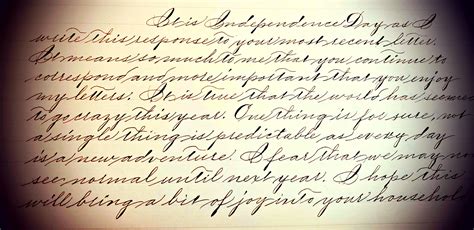 It is Independence Day as I
write this response to your most recent letter.
It means so much to me that you continue to
correspond and more important that you enjoy
my letters. It is true that the world has seemed
to go crazy this year. One thing is for sure, not
a single thing is predictable as every day
is a new adventure. I fear that we may not
see normal until next year. I hope this
will bring a bit of joy into your household